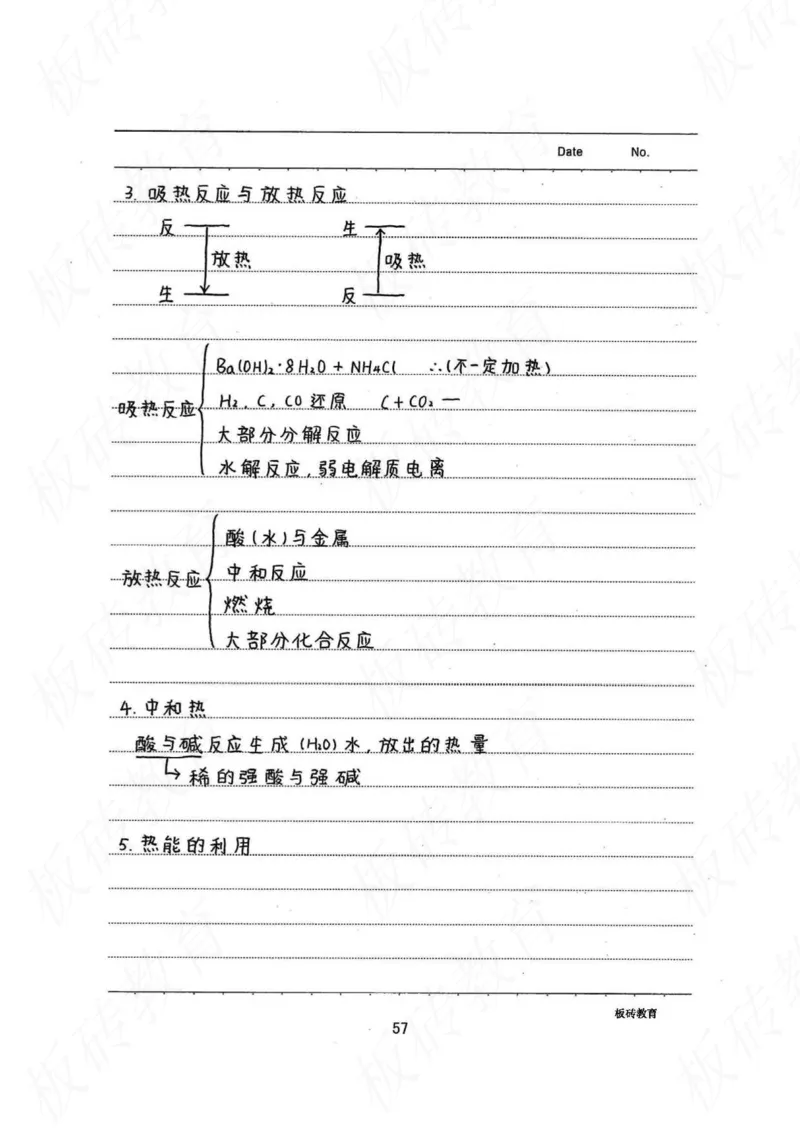 Date No.
3. 吸热反应与放热反应
反 生
放热 吸热
生 反
Ba(OH)₂·8H₂O + NH₄Cl ∴(不一定加热)
吸热反应 H₂, C, CO 还原 C + CO₂ —
大部分分解反应
水解反应, 弱电解质电离
酸(水)与金属
放热反应 中和反应
燃烧
大部分化合反应
4. 中和热
酸与碱反应生成 (H₂O) 水, 放出的热量
稀的强酸与强碱
5. 热能的利用
板砖教育
57